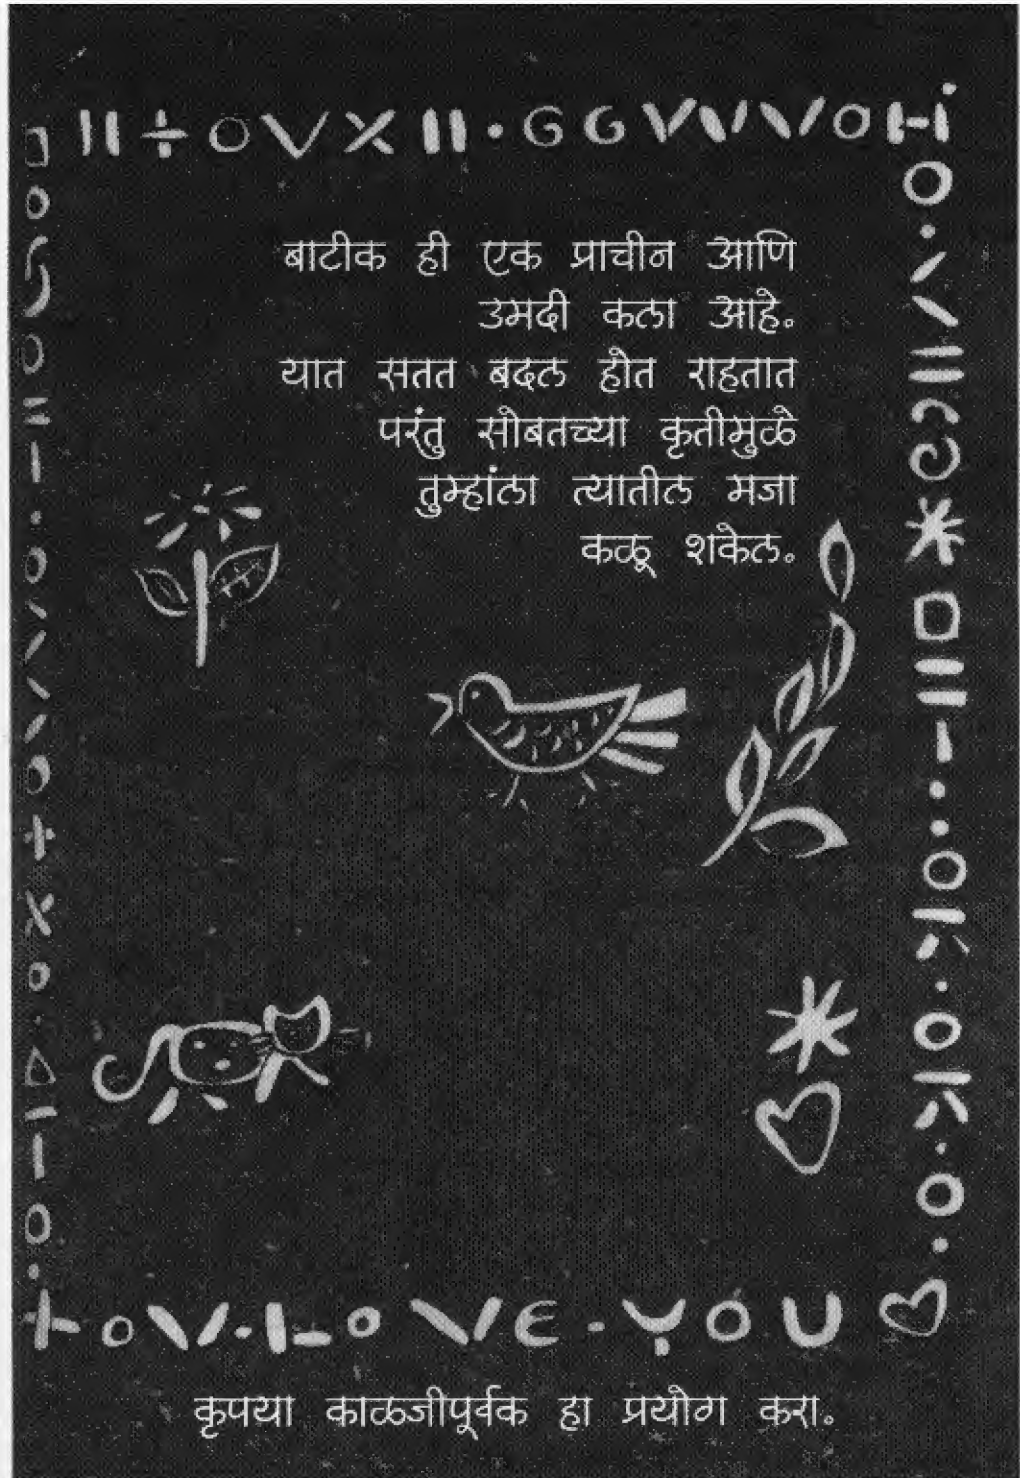 बाटीक ही एक प्राचीन आणि
उमदी कला आहे.
यात सतत बदल होत राहतात
परंतु सोबतच्या कृतीमुळे
तुम्हांला त्यातील मजा
कळू शकेल.
LOVE · YOU
कृपया काळजीपूर्वक हा प्रयोग करा.